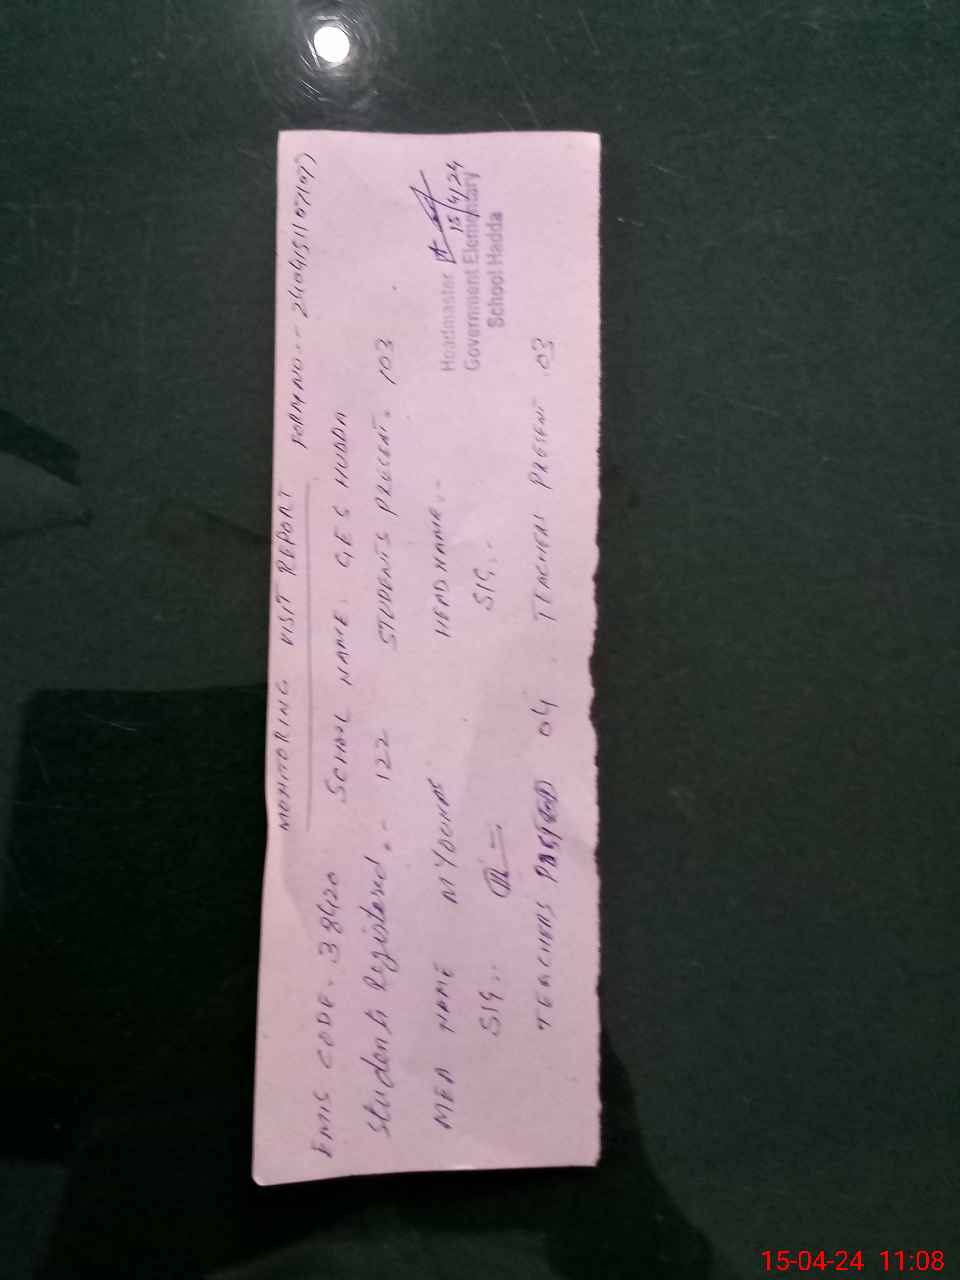 MONITORING VISIT REPORT FORM NO:- 240415110719)
EMIS CODE. 38420 SCHOOL NAME: GES HUDDA
Students Registered. - 122 STUDENTS PRESENT. 103
MEA NAME M YOUNAS HEAD NAME:-
SIG:- SIG:-
15/4/24
Headmaster
Government Elementary
School Hadda
TEACHERS POSTED 04. TEACHERS PRESENT. 03
15-04-24 11:08